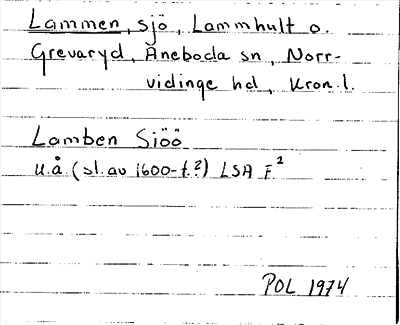 Lammen, sjö, Lammhult o.
Grevaryd, Aneboda sn, Norr-
vidinge hd, Kron. l.
Lamben Siöö
u.å. (sl. av 1600-t.?) LSA F²
POL 1974